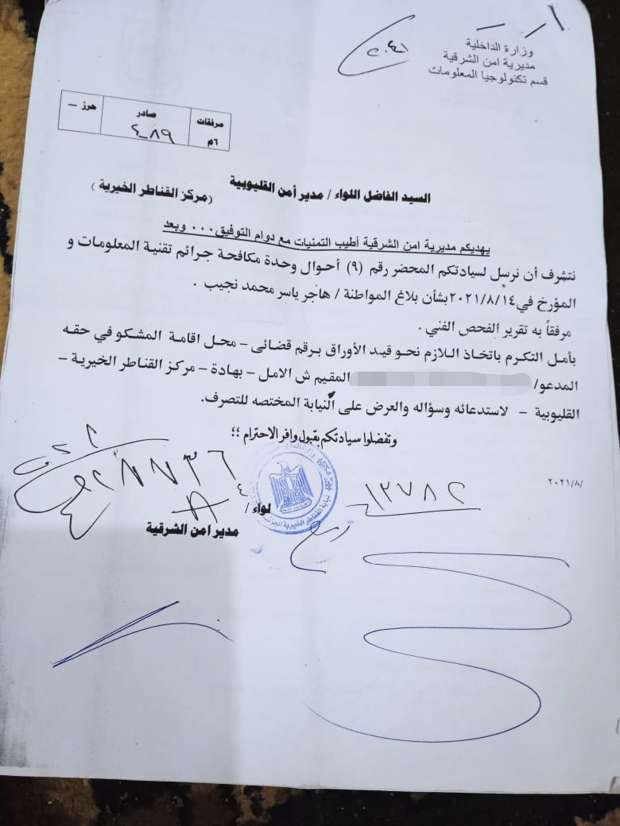 وزارة الداخلية
مديرية امن الشرقية
قسم تكنولوجيا المعلومات
مرفقات صادر حرز –
٦م ٤٠٨٩
السيد الفاضل اللواء / مدير أمن القليوبية
(مركز القناطر الخيرية )
يهديكم مديرية امن الشرقية أطيب التمنيات مع دوام التوفيق٠٠٠ وبعد
نتشرف أن نرسل لسيادتكم المحضر رقم (٩) أحوال وحدة مكافحة جرائم تقنية المعلومات و
المؤرخ في ٢٠٢١/٨/١٤ بشأن بلاغ المواطنة / هاجر ياسر محمد نجيب .
مرفقاً به تقرير الفحص الفني .
بأمل التكرم باتخاذ اللازم نحو قيد الأوراق برقم قضائى – محل اقامة المشكو في حقه
المدعو/ المقيم ش الامل – بهادة – مركز القناطر الخيرية –
القليوبية – لاستدعائه وسؤاله والعرض على النيابة المختصه للتصرف.
وتفضلوا سيادتكم بقبول وافر الاحترام ؛؛
٢٠٢١/٨/
١٣٧٨٢
لواء /
مدير امن الشرقية